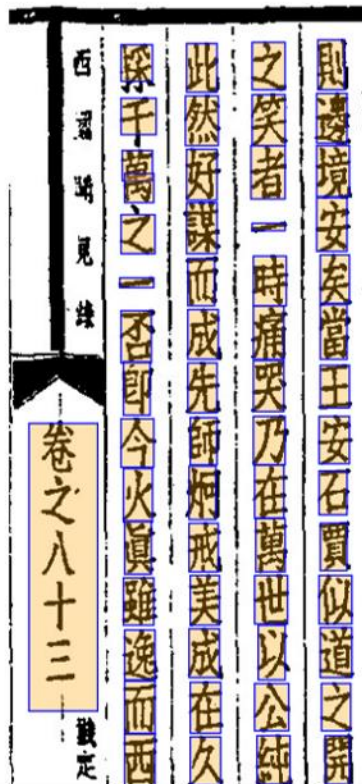 則邊境安矣當王安石賈似道之
之笑者一時痛哭乃在萬世以公純
此然好謀而成先師炯戒美成在久
採千萬之一否卽今火眞雖逸而西
西 聞見錄
卷之八十三